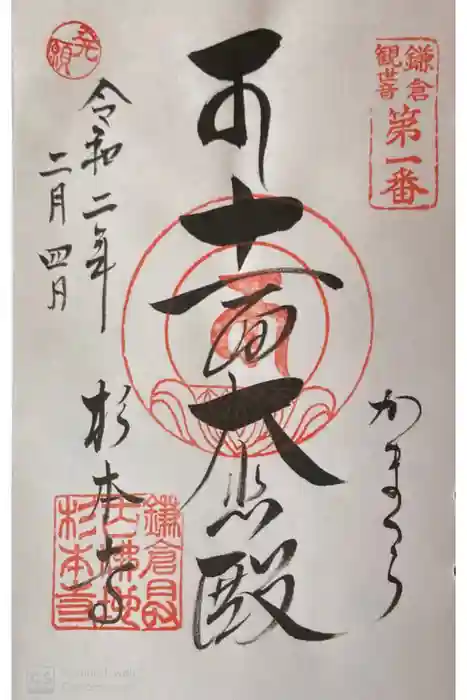 鎌倉
観世音
第一番
十一面大悲殿
かまくら
発願
令和二年
二月四日
杉本寺
鎌倉
杉本寺
CS
Scanned with
CamScanner